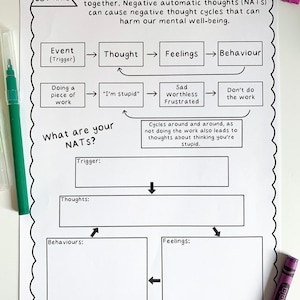 together. Negative automatic thoughts (NATs)
can cause negative thought cycles that can
harm our mental well-being.
Event
(Trigger)
Thought
Feelings
Behaviour
Doing a
piece of
work
"I'm stupid"
Sad
Worthless
Frustrated
Don't do
the work
Cycles around and around, as
not doing the work also leads to
thoughts about thinking you're
stupid.
What are your
NATs?
Trigger:
Thoughts:
Behaviours:
Feelings: